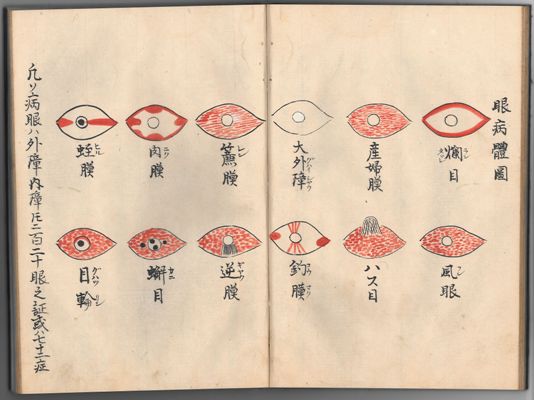 眼病體圖
爛目
産婦膜
大外障
簾膜
肉膜
蛭膜
風眼
ハス目
釣膜
逆膜
蠏目
目輪
凡ソ病眼ハ外障内障凡二百二十眼之証或ハ七十二症